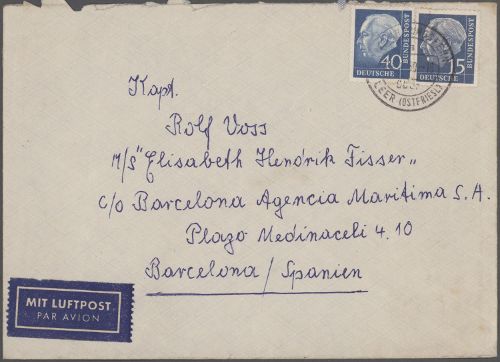 40
DEUTSCHE
BUNDESPOST
15
DEUTSCHE
BUNDESPOST
LEER (OSTFRIESL)
Kapt.
Rolf Voss
M/S "Elisabeth Hendrik Fisser"
c/o Barcelona Agencia Maritima S.A.
Plazo Medinaceli 4.10
Barcelona / Spanien
MIT LUFTPOST
PAR AVION